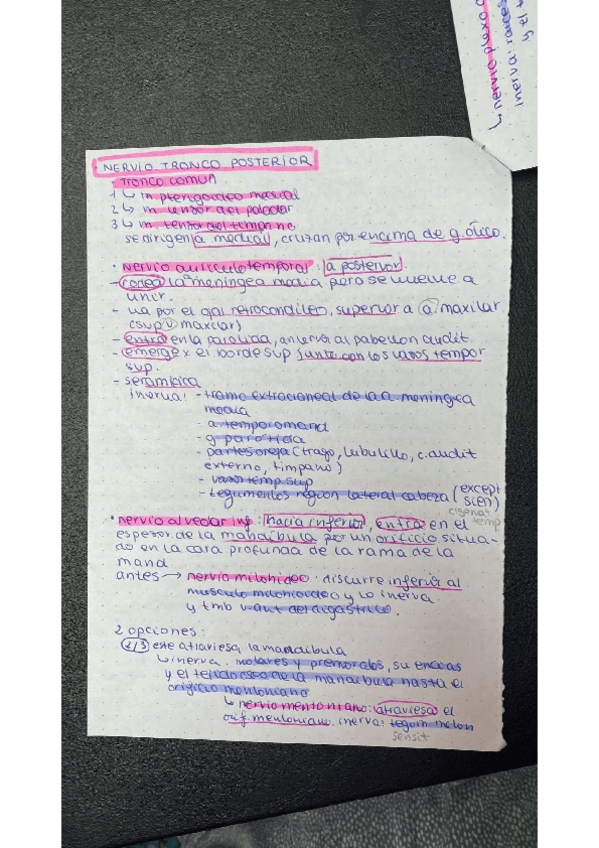 ↳ nervio plexo
inerva: raices
y el t
- NERVIO TRONCO POSTERIOR
- TRONCO COMUN
1 ↳ m pterigoideo medial
2 ↳ m tensor del paladar
3 ↳ m. tensor del timpano
se dirigen a medial, cruzan por encima de g. ótico.
· nervio auriculotemporal: a posterior.
- rodea la a meningea media pero se vuelve a
unir.
- va por el ojal retrocondileo, superior a a maxilar
(sup v maxilar)
- entra en la parotida, anterior al pabellon audit
- emerge x el borde sup junto con los vasos tempor
sup.
- se ramifica
inerva: - tramo extracraneal de la a meningea
media
- a temporomand
- g parotida
- partes oreja (trago, lubulillo, c. audit
externo, timpano)
- vasos temp sup
- tegumentos region lateral cabeza (except
sien)
cigomat
temp
· nervio alveolar inf: hacia inferior, entra en el
espesor de la mandibula por un orificio situa-
do en la cara profunda de la rama de la
mand
antes → nervio milohideo: discurre inferior al
musculo milohioideo y lo inerva
y tmb v ant del digastrico.
2 opciones:
2/3 este atraviesa la mandibula
↳ inerva. molares y premorales, su encias
y el tejido oseo de la mandibula hasta el
orificio mentoniano
↳ nervio mentoniano: atraviesa el
orif. mentoniano. inerva: tegum menton
sensit